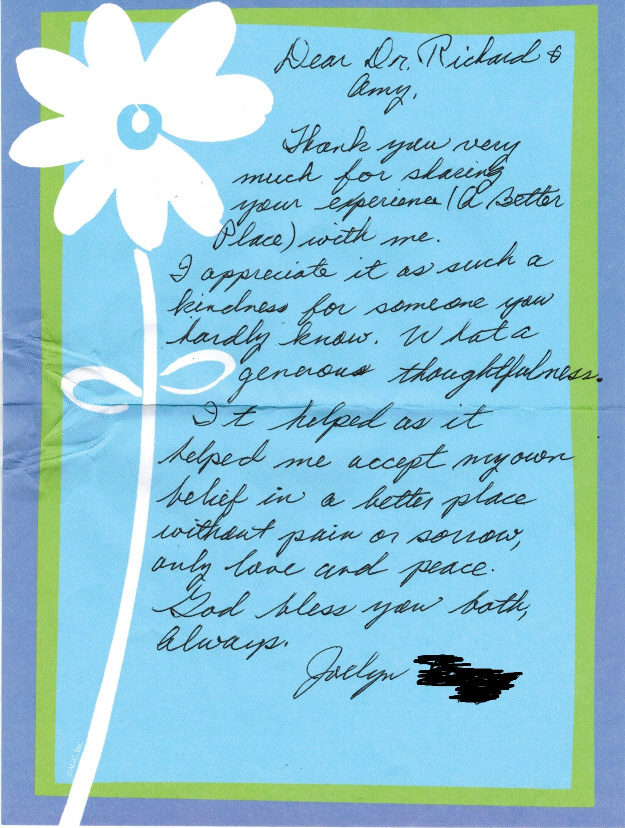 Dear Dr. Richard &
Amy,
Thank you very
much for sharing
your experience (A Better
Place) with me.
I appreciate it as such a
kindness for someone you
hardly know. What a
generous thoughtfulness.
It helped as it
helped me accept my own
belief in a better place
without pain or sorrow,
only love and peace.
God bless you both,
always.
Joelyn
©AGC, Inc.